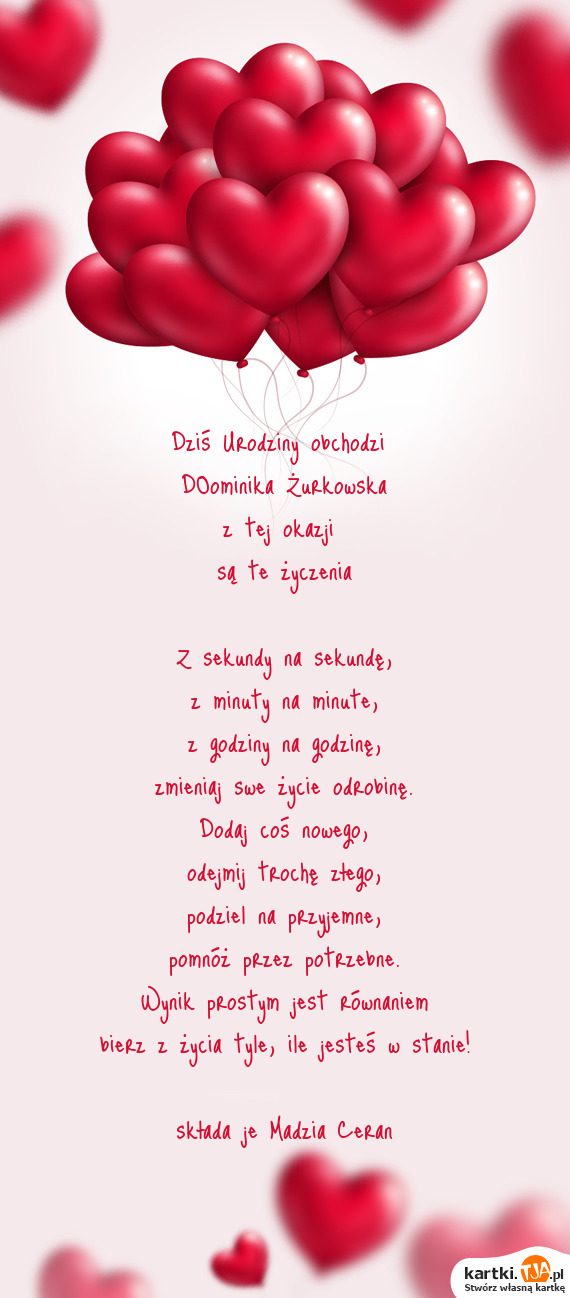 Dziś Urodziny obchodzi
DOominika Żurkowska
z tej okazji
są te życzenia
Z sekundy na sekundę,
z minuty na minute,
z godziny na godzinę,
zmieniaj swe życie odrobinę.
Dodaj coś nowego,
odejmij trochę złego,
podziel na przyjemne,
pomnóż przez potrzebne.
Wynik prostym jest równaniem
bierz z życia tyle, ile jesteś w stanie!
składa je Madzia Ceran
kartki.TJA.pl
Stwórz własną kartkę